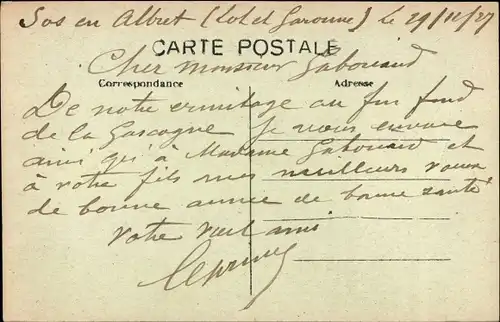 Sos en Albret (Lot et Garonne) le 29/12/27
CARTE POSTALE
Cher monsieur Gabouiaud
Correspondance Adresse
De notre ermitage au fin fond
de la Gascogne je vous envoie
ainsi qu'à Madame Gabouiaud et
à votre fils mes meilleurs voeux
de bonne année de bonne santé
votre vieil ami